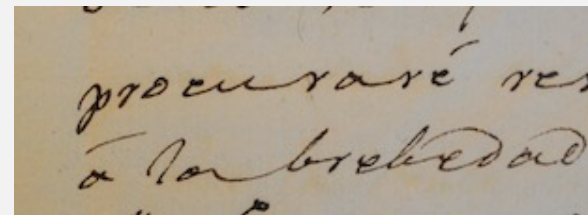 procuraré
á la brebedad